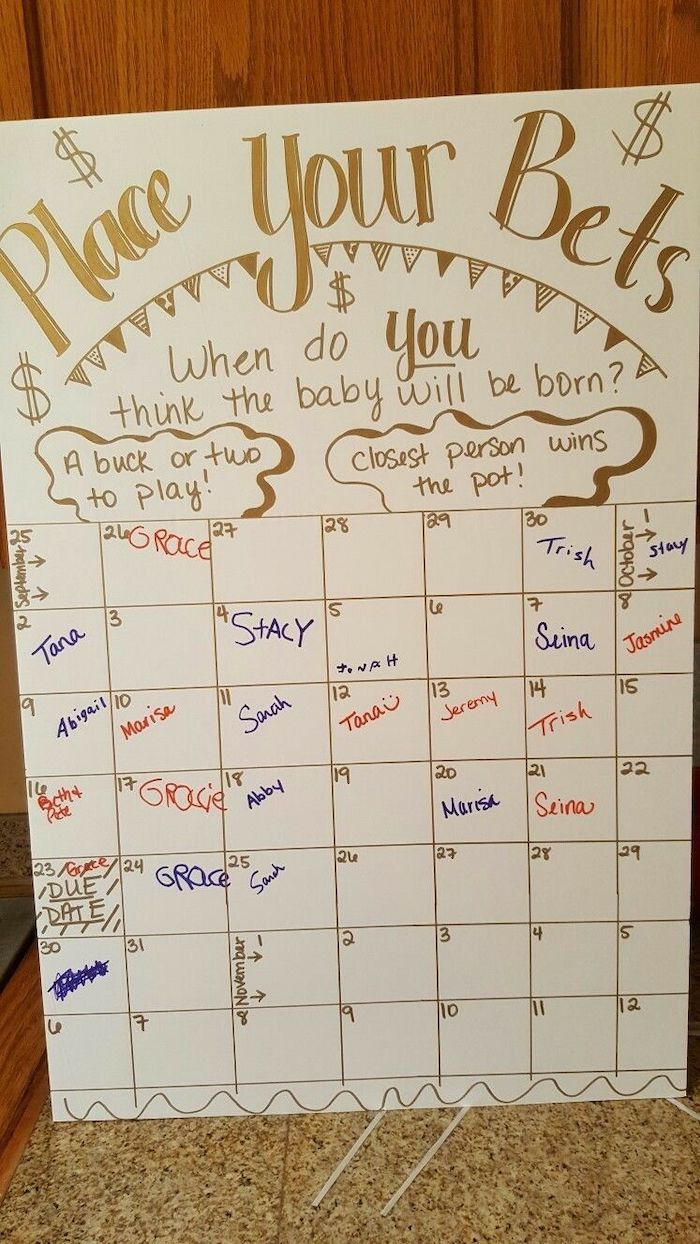 $ $
Place Your Bets
$
$
When do you
think the baby will be born?
A buck or two
to play!
Closest person wins
the pot!
25 September
26 GRACE
27
28
29
30 Trish
October 1 Stacy
2 Tana
3
4 STACY
5 JONAH
6
7 Seina
8 Jasmine
9 Abigail
10 Marisa
11 Sarah
12 Tana
13 Jeremy
14 Trish
15
16 Beth &
Pete
17 GRACIE
18 Abby
19
20 Marisa
21 Seina
22
23 Grace
DUE
DATE
24 GRACE
25 Sarah
26
27
28
29
30
31
November 1
2
3
4
5
6
7
8
9
10
11
12